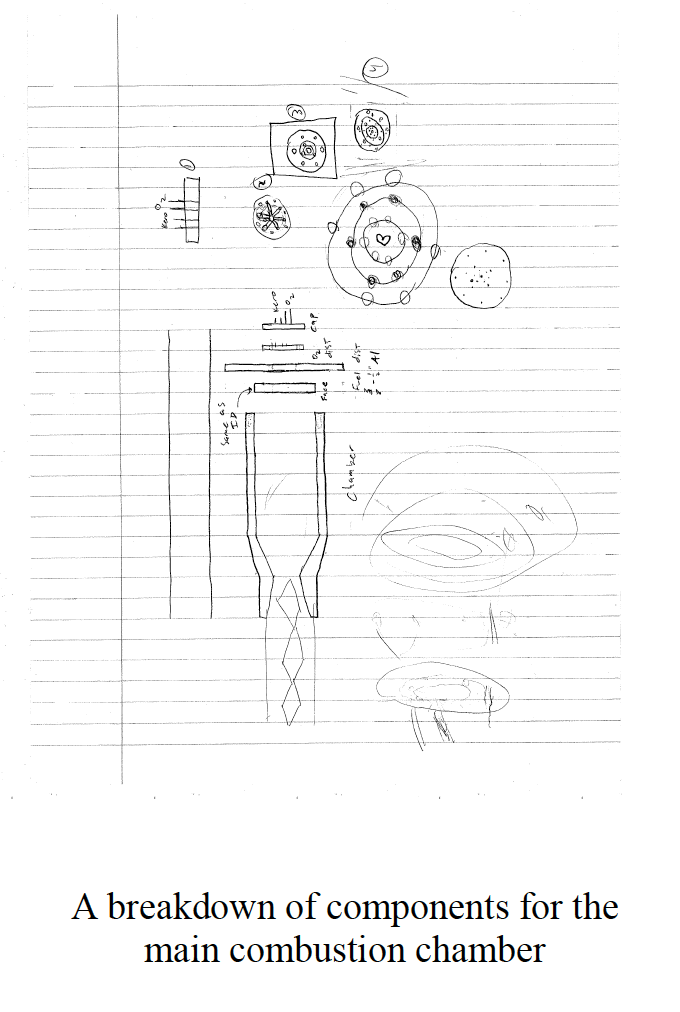 4
3
2
1
Kero O2
Kero
O2
Cap
O2
dist
Fuel dist
Al
Face
Same as
ID
Chamber
A breakdown of components for the
main combustion chamber